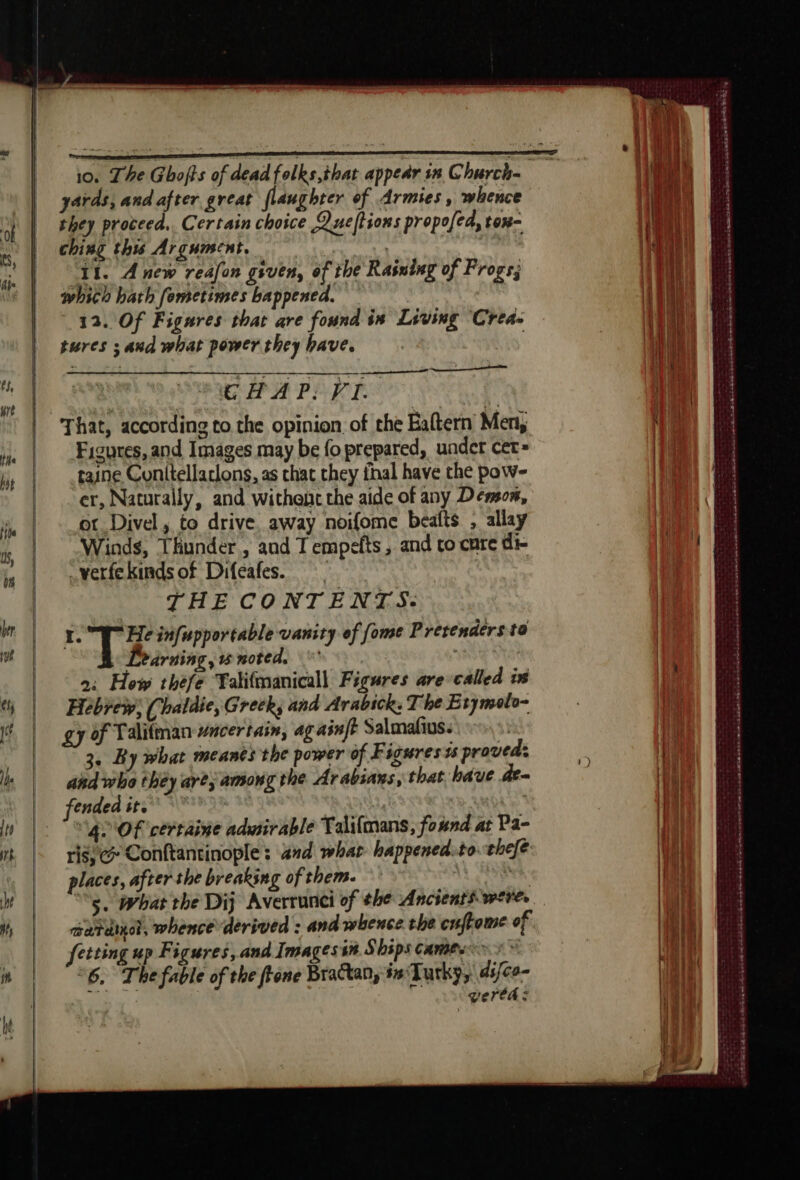 10. The Ghoſts of dead folks, that appear in Church-
yards, and after great ſlaughter of Armies, whence
they proceed. Certain choice Queſtions propoſed, tou-
ching this Argument.
11. A new reaſon given, of the Raining of Frogs;
which hath ſometimes happened.
12. Of Figures that are found in Living Crea-
tures; and what power they have.
CHAP. VI.
That, according to the opinion of the Eaſtern Men,
Figures, and Images may be ſo prepared, under cer-
taine Conſtellations, as that they ſhal have the pow-
er, Naturally, and without the aide of any Demon,
or Divel, to drive away noiſome beaſts, allay
Winds, Thunder, and Tempeſts, and to cure di-
verſe kinds of Diſeaſes.
THE CONTENTS.
1. The inſupportable vanity of ſome Pretenders to
Learning, is noted.
2. How theſe Taliſmanicall Figures are called in
Hebrew, Chaldie, Greek, and Arabick. The Etymolo-
gy of Taliſman uncertain, againſt Salmaſius.
3. By what meanes the power of Figures is proved:
and who they are, among the Arabians, that have de-
fended it.
4. Of certaine admirable Taliſmans, found at Pa-
ris, & Conſtantinople: and what happened to theſe
places, after the breaking of them.
5. What the Dij Averrunci of the Ancients were.
whence derived: and whence the cuſtome of
ſetting up Figures, and Images in Ships came.
6. The fable of the ſtone Bractan, in Turky, diſco-
vered: